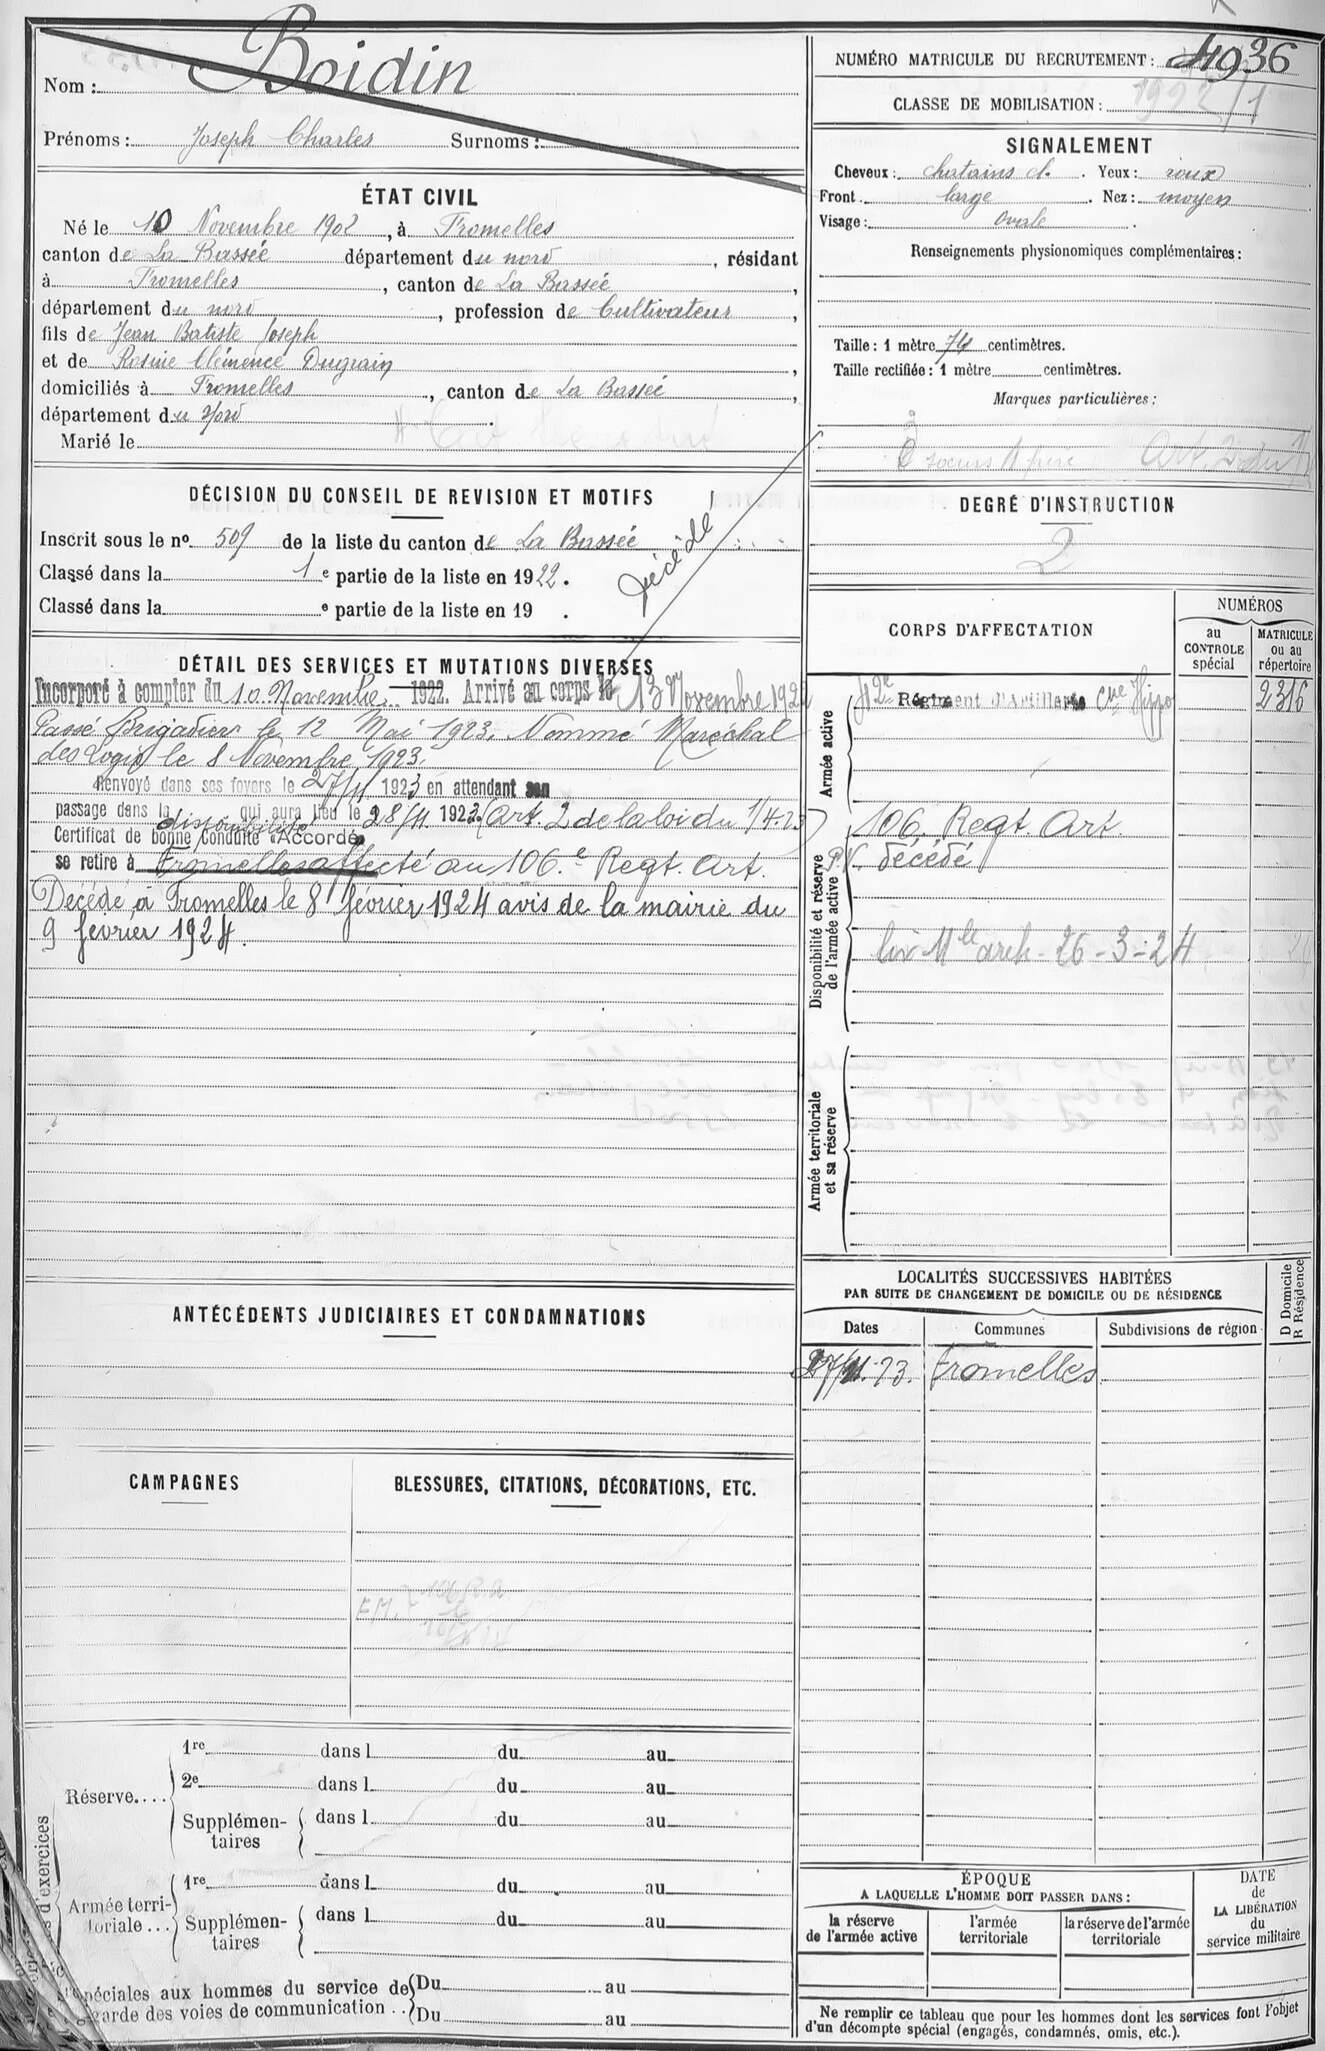 Nom : Boidin
Prénoms : Joseph Charles Surnoms :
ÉTAT CIVIL
Né le 10 Novembre 1902, à Fromelles
canton de La Bassée département du nord, résidant
à Fromelles, canton de La Bassée,
département du nord, profession de Cultivateur,
fils de Jean Batiste Joseph
et de Rosine Clémence Dugrain,
domiciliés à Fromelles, canton de La Bassée,
département du Nord.
Marié le
DÉCISION DU CONSEIL DE REVISION ET MOTIFS
Inscrit sous le no. 509 de la liste du canton de La Bassée
Classé dans la 1e partie de la liste en 1922.
Classé dans la e partie de la liste en 19 .
Décédé
DÉTAIL DES SERVICES ET MUTATIONS DIVERSES
Incorporé à compter du 10 Novembre 1922. Arrivé au corps le 13 Novembre 1922
Passé Brigadier le 12 Mai 1923. Nommé Maréchal
des Logis le 8 Novembre 1923.
Renvoyé dans ses foyers le 27/11 1923 en attendant son
passage dans la disponibilité qui aura lieu le 28/11 1923 (Art. 2 de la loi du 1/4.23)
Certificat de bonne conduite "Accordé"
se retire à Fromelles affecté au 106.e Regt. Art.
Décédé à Fromelles le 8 février 1924 avis de la mairie du
9 février 1924.
ANTÉCÉDENTS JUDICIAIRES ET CONDAMNATIONS
CAMPAGNES
BLESSURES, CITATIONS, DÉCORATIONS, ETC.
Réserve....
1re dans l du au
2e dans l du au
Supplémentaires dans l du au
Armée territoriale...
1re dans l du au
Supplémentaires dans l du au
d'exercices
spéciales aux hommes du service de Du au
garde des voies de communication .. Du au
NUMÉRO MATRICULE DU RECRUTEMENT : 4936
CLASSE DE MOBILISATION : 1922/1
SIGNALEMENT
Cheveux : chatains cl. Yeux : roux
Front large. Nez : moyen
Visage : ovale.
Renseignements physionomiques complémentaires :
Taille : 1 mètre 74 centimètres.
Taille rectifiée : 1 mètre centimètres.
Marques particulières :
soeurs 1 frère Art. 2 du
DEGRÉ D'INSTRUCTION
2
CORPS D'AFFECTATION
NUMÉROS
au CONTROLE spécial
MATRICULE ou au répertoire
Armée active
42e Régiment d'Artillerie Cne Hippo 2316
Disponibilité et réserve de l'armée active
106. Regt. Art.
P.V. décédé
arch. 26-3-24
Armée territoriale et sa réserve
LOCALITÉS SUCCESSIVES HABITÉES
PAR SUITE DE CHANGEMENT DE DOMICILE OU DE RÉSIDENCE
D Domicile
R Résidence
Dates Communes Subdivisions de région
27/11.23. Fromelles
ÉPOQUE
A LAQUELLE L'HOMME DOIT PASSER DANS :
la réserve de l'armée active
l'armée territoriale
la réserve de l'armée territoriale
DATE de LA LIBÉRATION du service militaire
Ne remplir ce tableau que pour les hommes dont les services font l'objet
d'un décompte spécial (engagés, condamnés, omis, etc.).